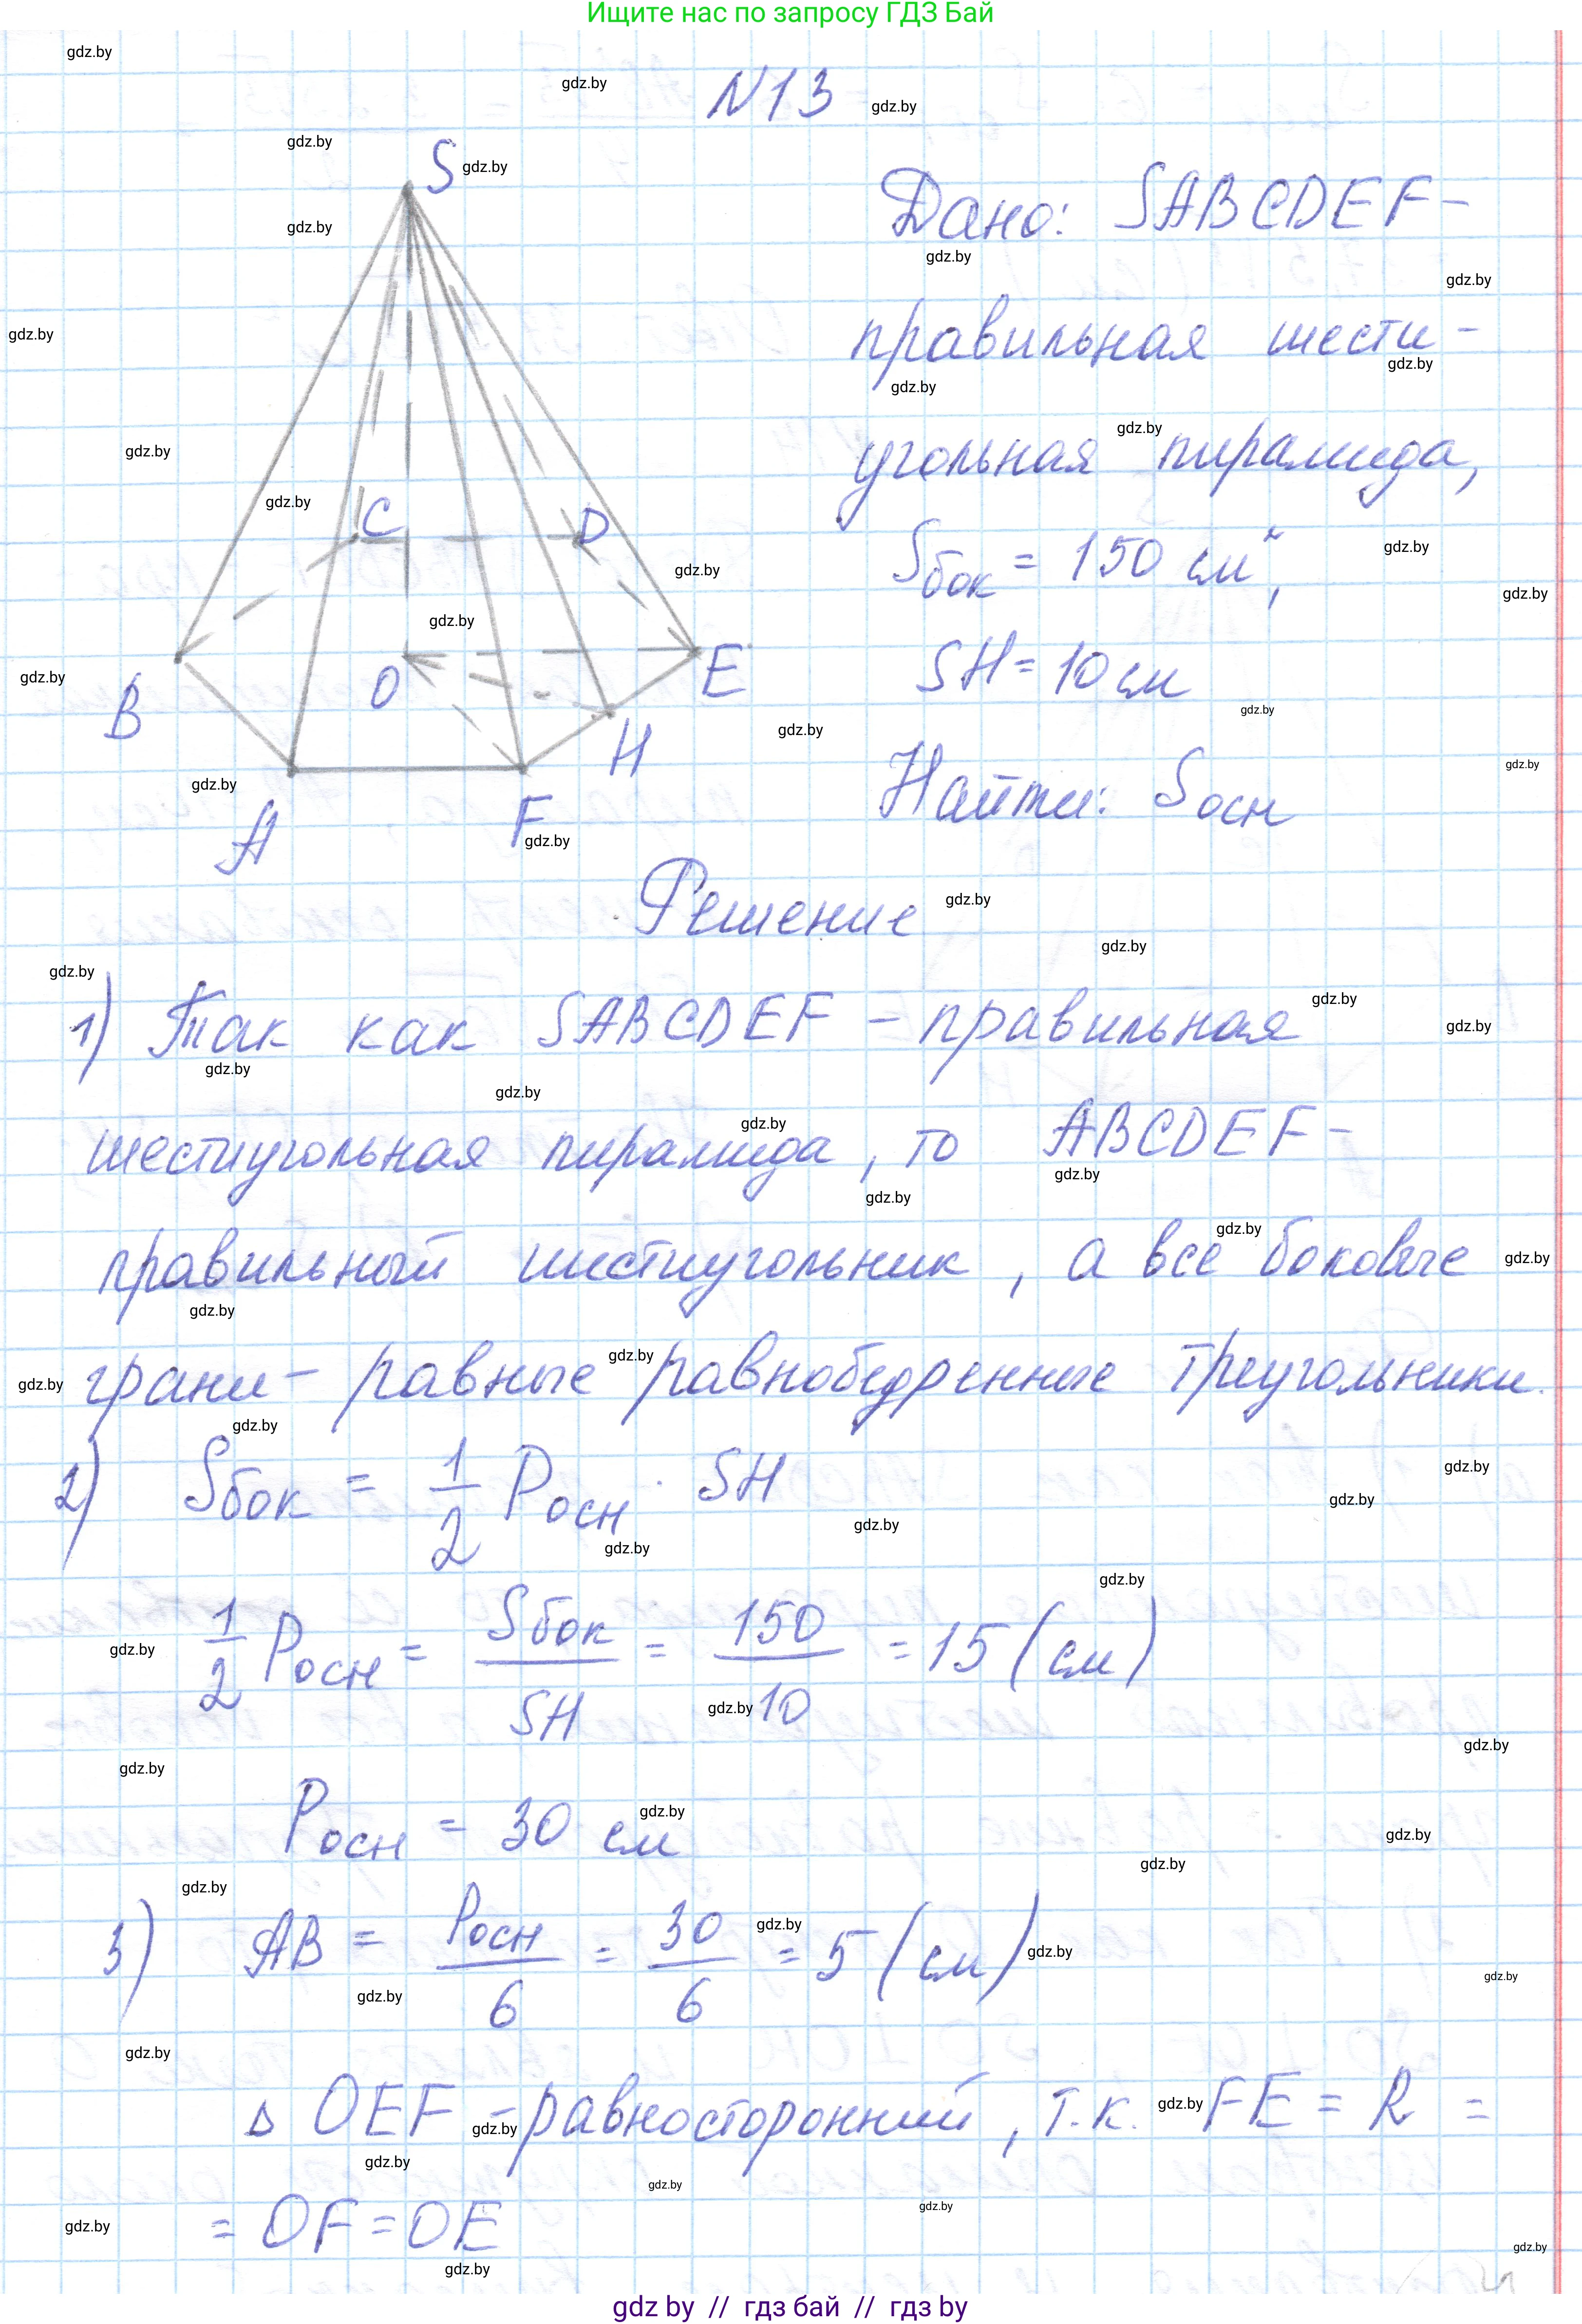 Ищите нас по запросу ГДЗ Бай
N13
S
Дано: SABCDEF-
правильная шести-
угольная пирамида,
Sбок = 150 см²,
SH = 10 см
Найти: Sосн
C
D
O
E
B
H
A
F
Решение
1) Так как SABCDEF - правильная
шестиугольная пирамида, то ABCDEF-
правильный шестиугольник, а все боковые
грани- равные равнобедренные треугольники.
2) Sбок = 1/2 Pосн · SH
1/2 Pосн = Sбок/SH = 150/10 = 15 (см)
Pосн = 30 см
3) AB = Pосн/6 = 30/6 = 5 (см)
Δ OEF - равносторонний, т.к. FE = R =
= OF = OE
gdz by // гдз бай // гдз by